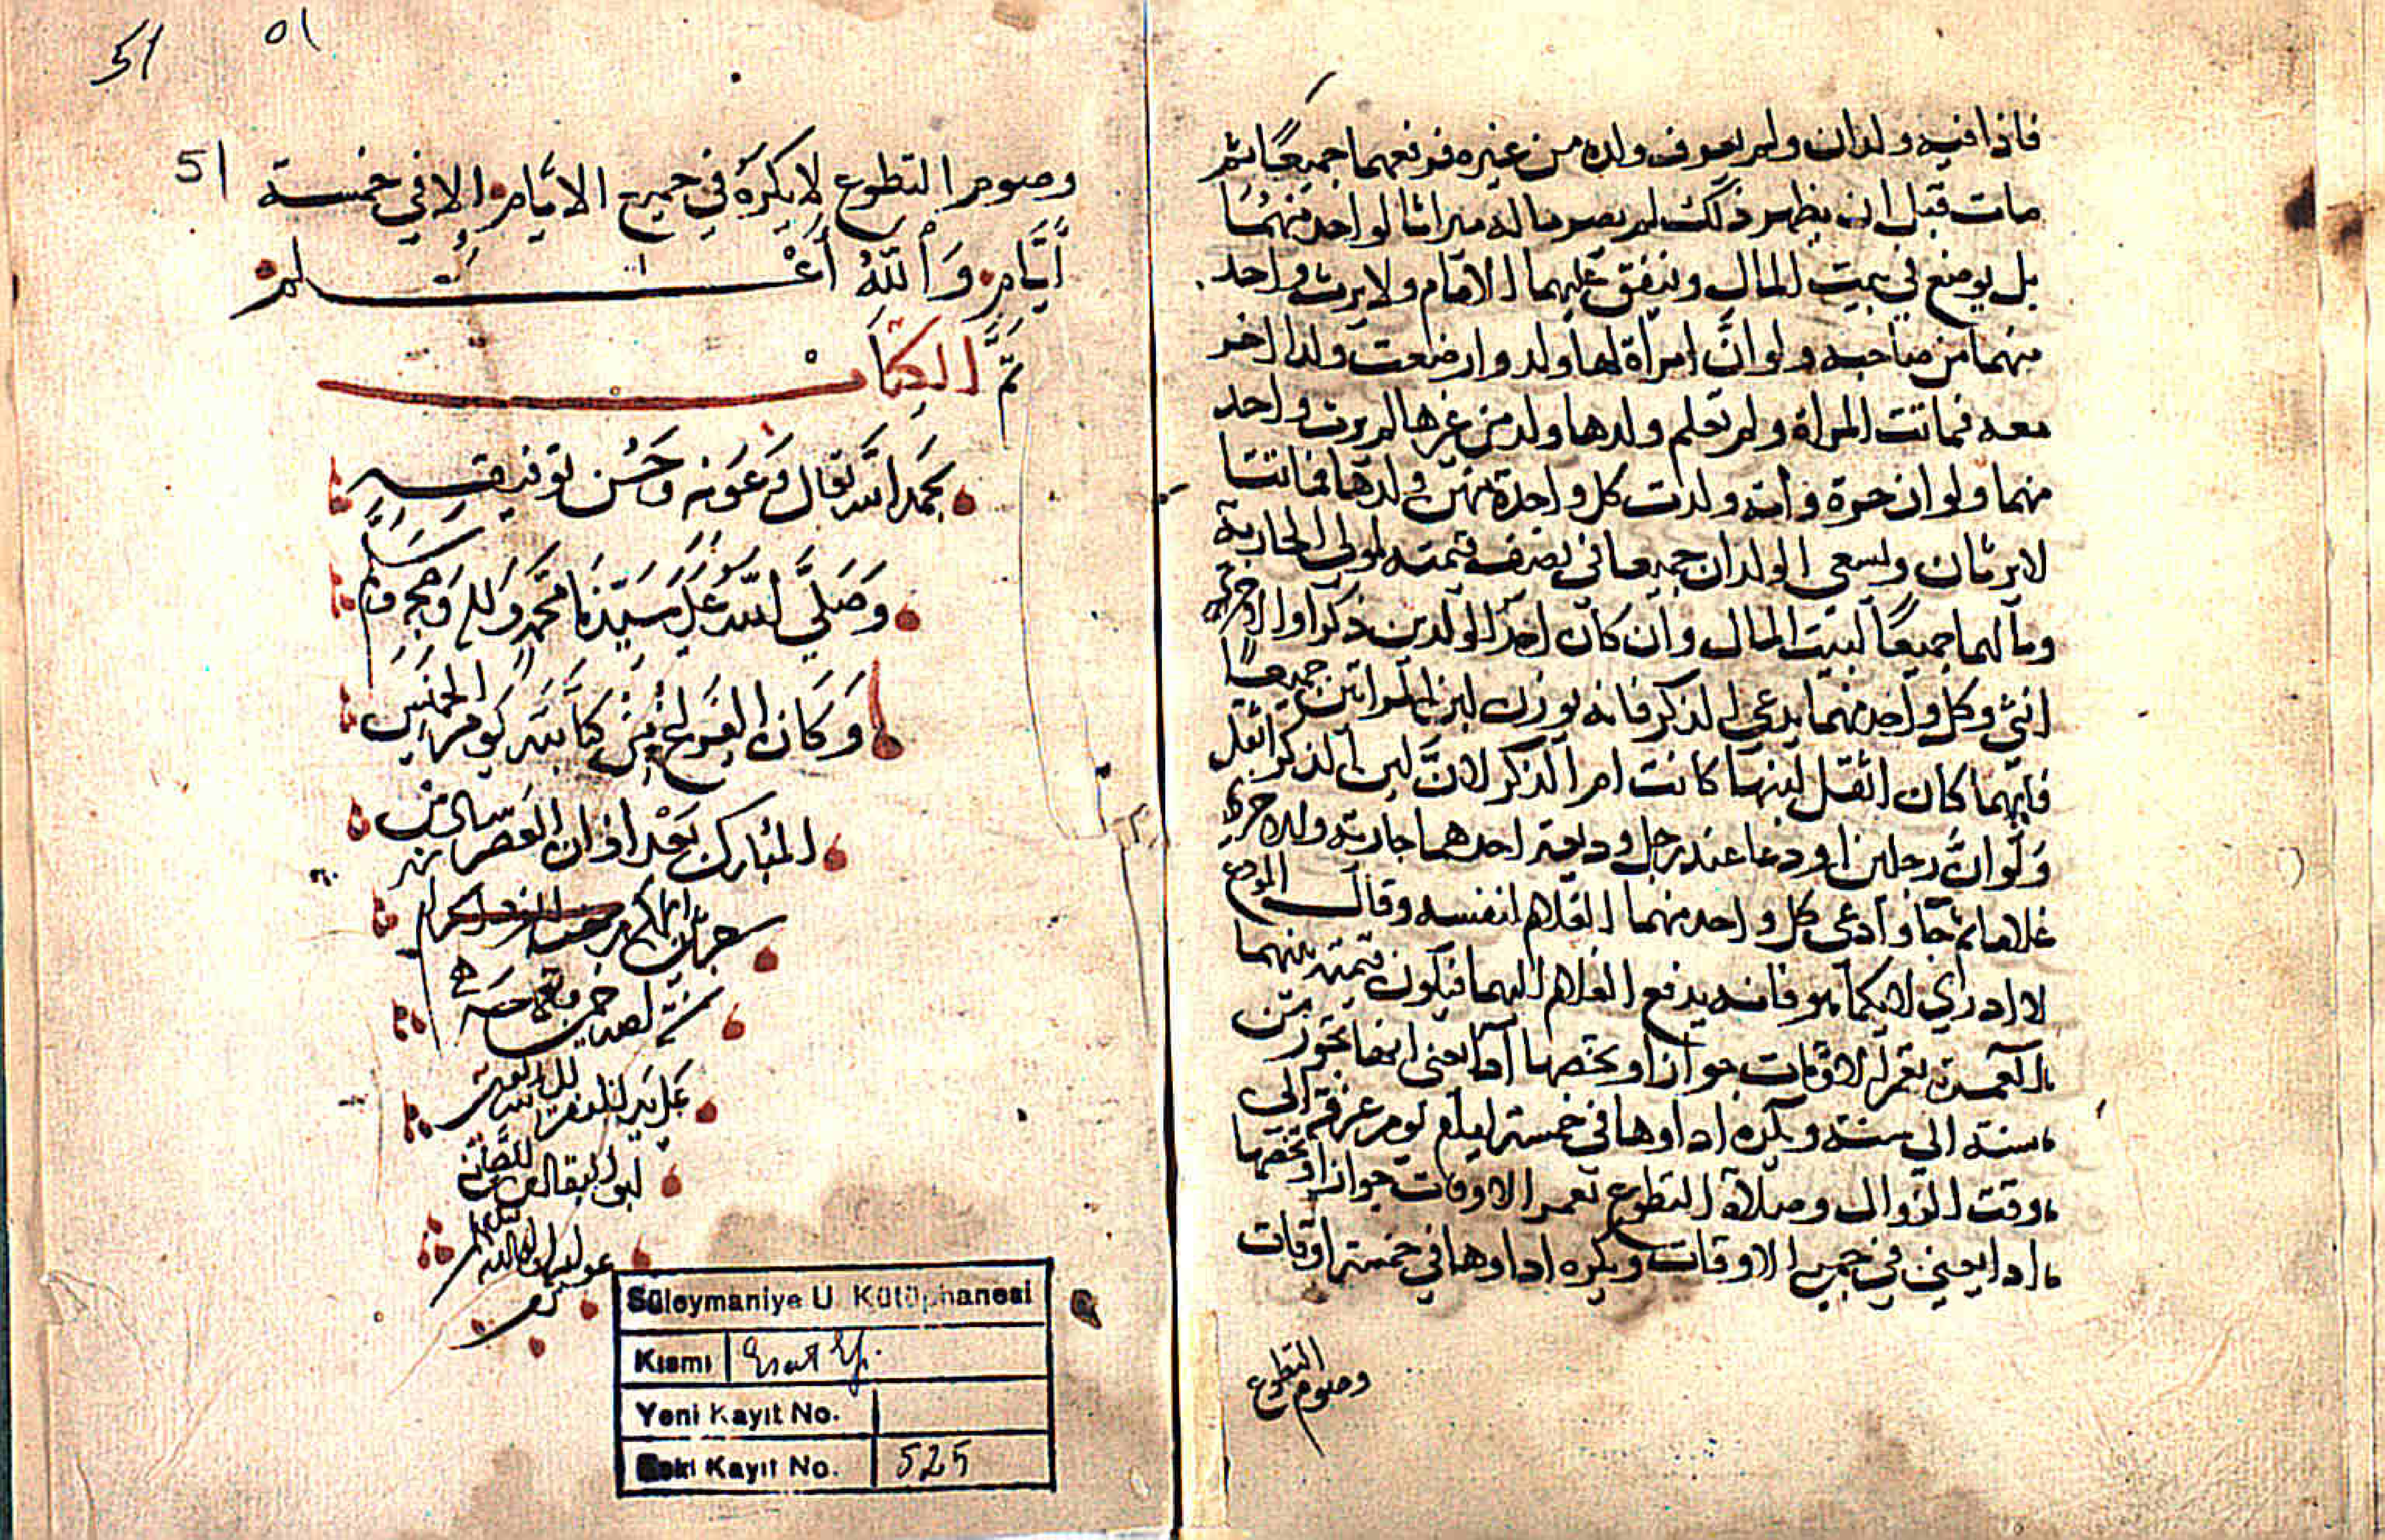 فاذا فيه ولدان ولم يعرف ولده من غيره فرفعهما جميعًا ثم
مات قبل ان يظهر ذلك لم يصر ماله ميراثا لواحد منهما
بل يوضع في بيت المال وينفق عليهما الامام ولا يرث واحد
منهما من صاحبه ولو انَّ امراة لها ولد وارضعت ولدا اخر
معه فماتت المراة ولم تعلم ولدها ولد من غيرها لم يرث واحد
منهما ولو ان حرة وامة ولدت كل واحدة منهن ولدها فماتتا
لا يرثان ويسعى الولدان جميعا في نصف قيمته لمولى الجارية
ومالهما جميعًا لبيت المال وان كان احد الولدين ذكرا والاخر
انثى وكل واحد منهما يدعي الذكر فانه يوزن لبن المراتين جميعًا
فايهما كان اثقل لبنها كانت ام الذكر لانَّ لبن الذكر اثقل
وَلَو انَّ رجلين اودعا عند رجل وديعة احدهما جارية والاخر
غلاما ثم جاآ وادعى كل واحد منهما الغلام لنفسه وقال المودع
لا ادري لايكما هو فانه يدفع الغلام اليهما فيكون قيمته بينهما
العمرة تعم الاوقات جوازا وتخصها ادا يعني انها تجوز من
سنة الى سنة ويكره اداوها في خمسة ايام يوم عرفة الى
وقت الزوال وصلاة التطوع تعم الاوقات جوازا وتخصها
ادا يعني في جميع الاوقات ويكره اداوها في خمسة اوقات
وصوم التطوع
51
٥١
51
وصوم التطوع لا يكره في جميع الايام الا في خمسة
أيَّام وَاللهُ أَعْلم
تمَّ الكتاب
بحمد الله تعالى وعونه وحسن توفيقه
وَصَلَّى الله على سيدنا محمد واله وصحبه وسلم
وكان الفراغ من كتابته يوم الخميس
المبارك بعد اذان العصر
على يد
Süleymaniye U Kütüphanesi
Kısmı Esat Ef.
Yeni Kayıt No.
Eski Kayıt No. 525